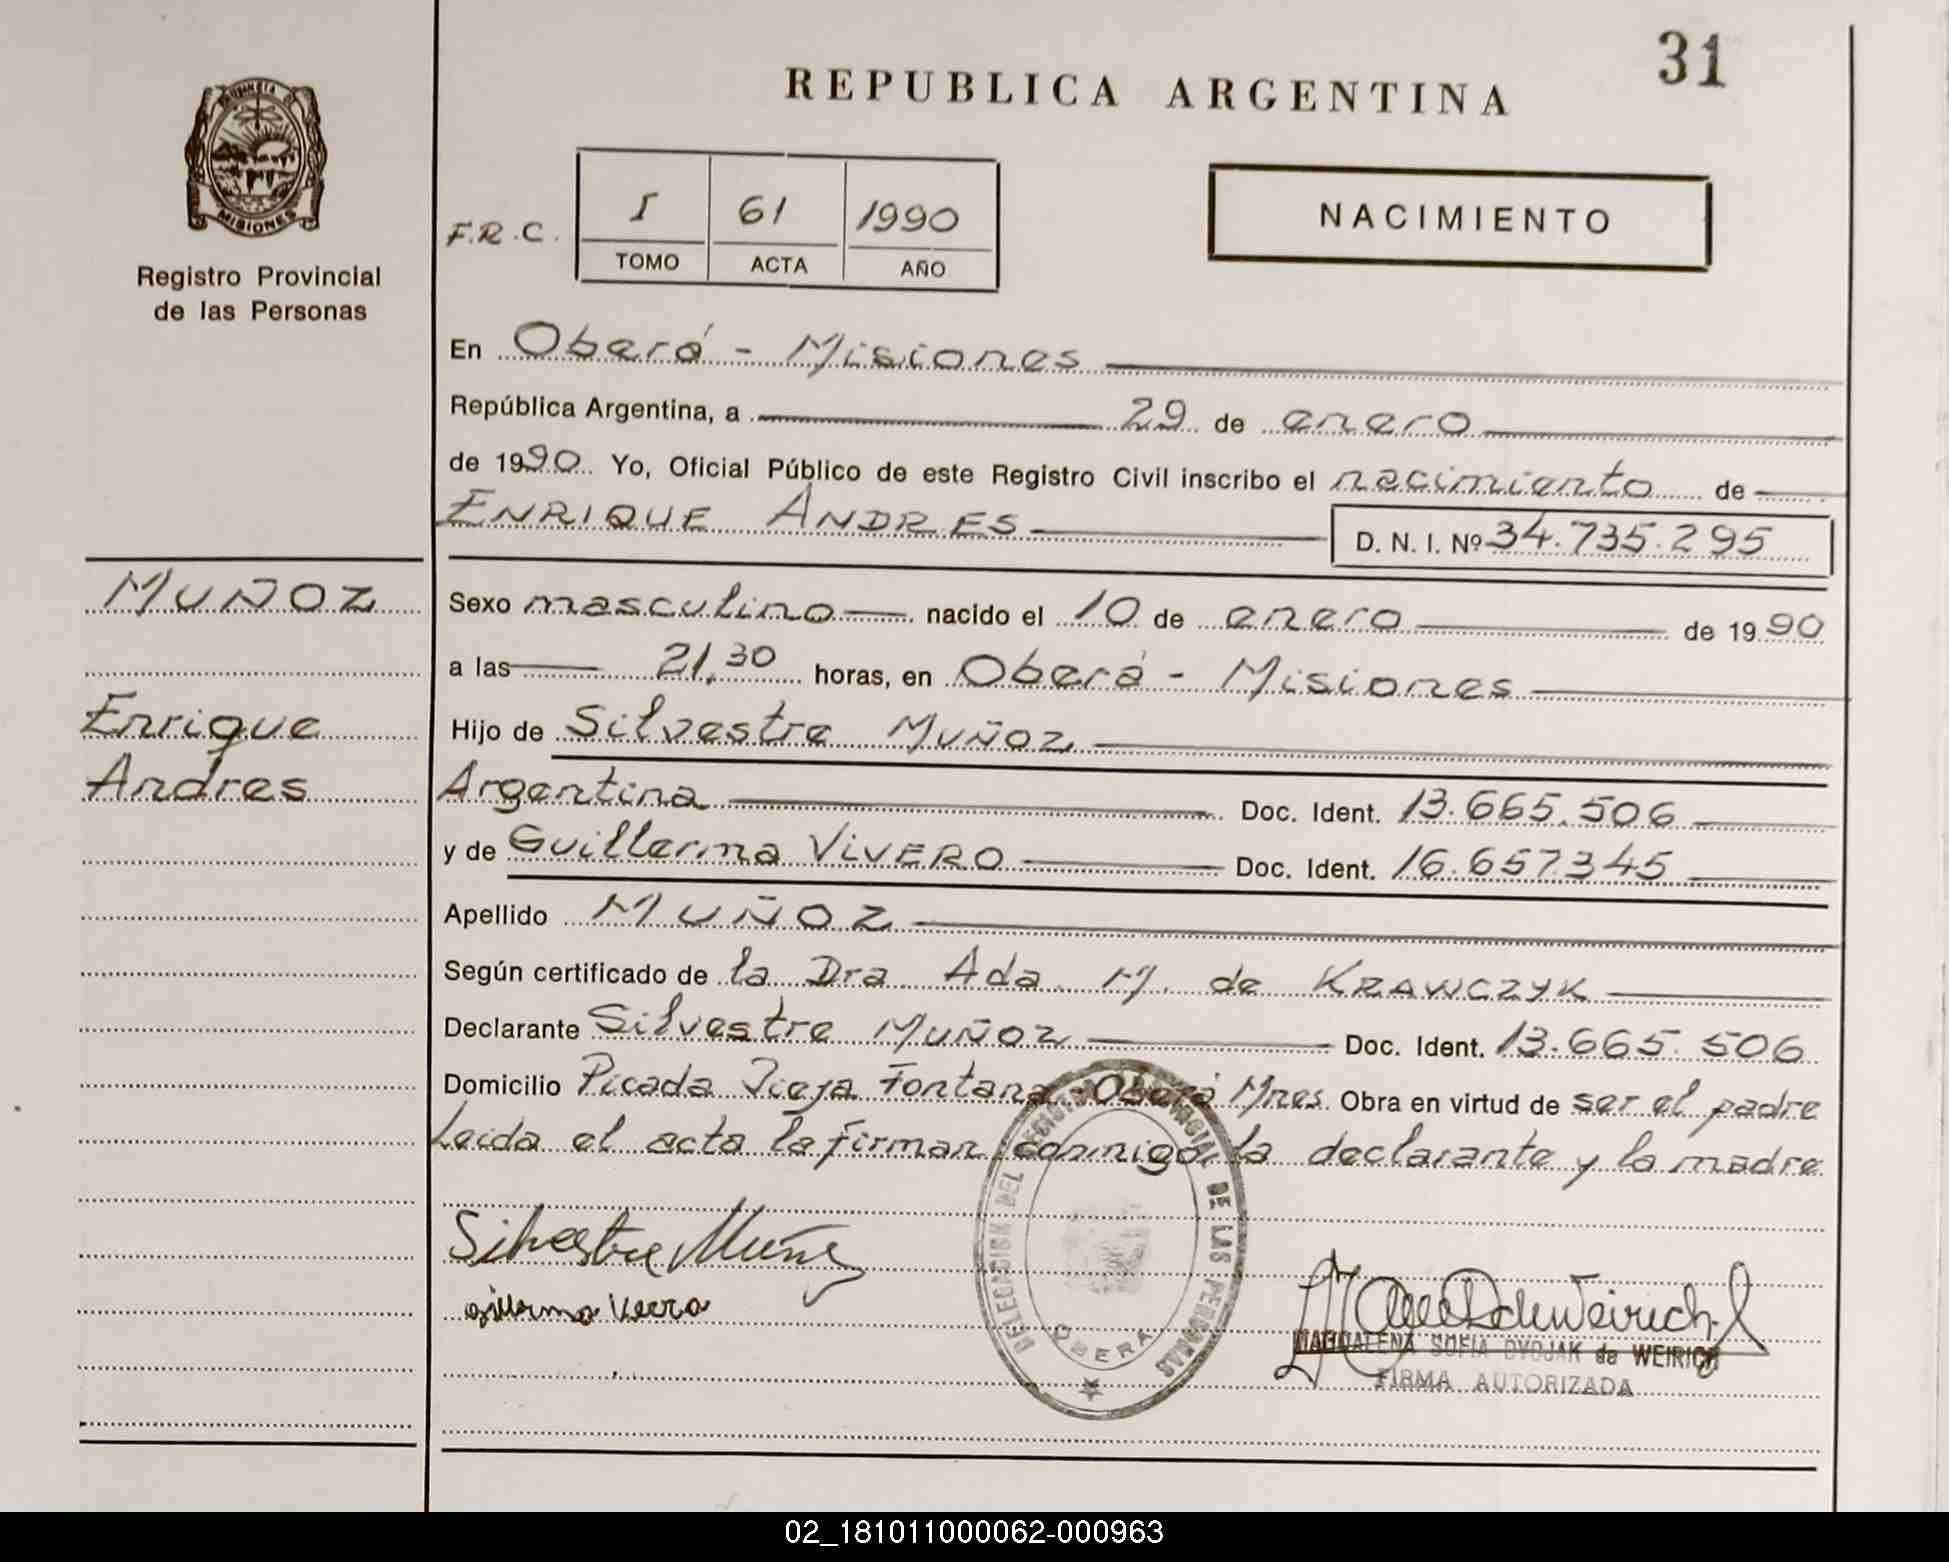 31
REPUBLICA ARGENTINA
PROVINCIA DE
MISIONES
Registro Provincial
de las Personas
F.R.C. I 61 1990
TOMO ACTA AÑO
NACIMIENTO
En Oberá - Misiones
República Argentina, a 29 de enero
de 1990 Yo, Oficial Público de este Registro Civil inscribo el nacimiento de
ENRIQUE ANDRES D. N. I. Nº 34.735.295
MUÑOZ
Enrique
Andres
Sexo masculino nacido el 10 de enero de 1990
a las 21,30 horas, en Oberá - Misiones
Hijo de Silvestre MUÑOZ
Argentina Doc. Ident. 13.665.506
y de Guillerma VIVERO Doc. Ident. 16.657.345
Apellido MUÑOZ
Según certificado de la Dra Ada M. de KRAWCZYK
Declarante Silvestre MUÑOZ Doc. Ident. 13.665.506
Domicilio Picada Vieja Fontana - Oberá Mnes. Obra en virtud de ser el padre
Leida el acta la firman conmigo, la declarante y la madre
Silvestre Muñoz
DELEGACION DEL REGISTRO PROVINCIAL DE LAS PERSONAS
OBERA
MAGDALENA SOFIA DYDJAK de WEIRICH
FIRMA AUTORIZADA
02_181011000062-000963